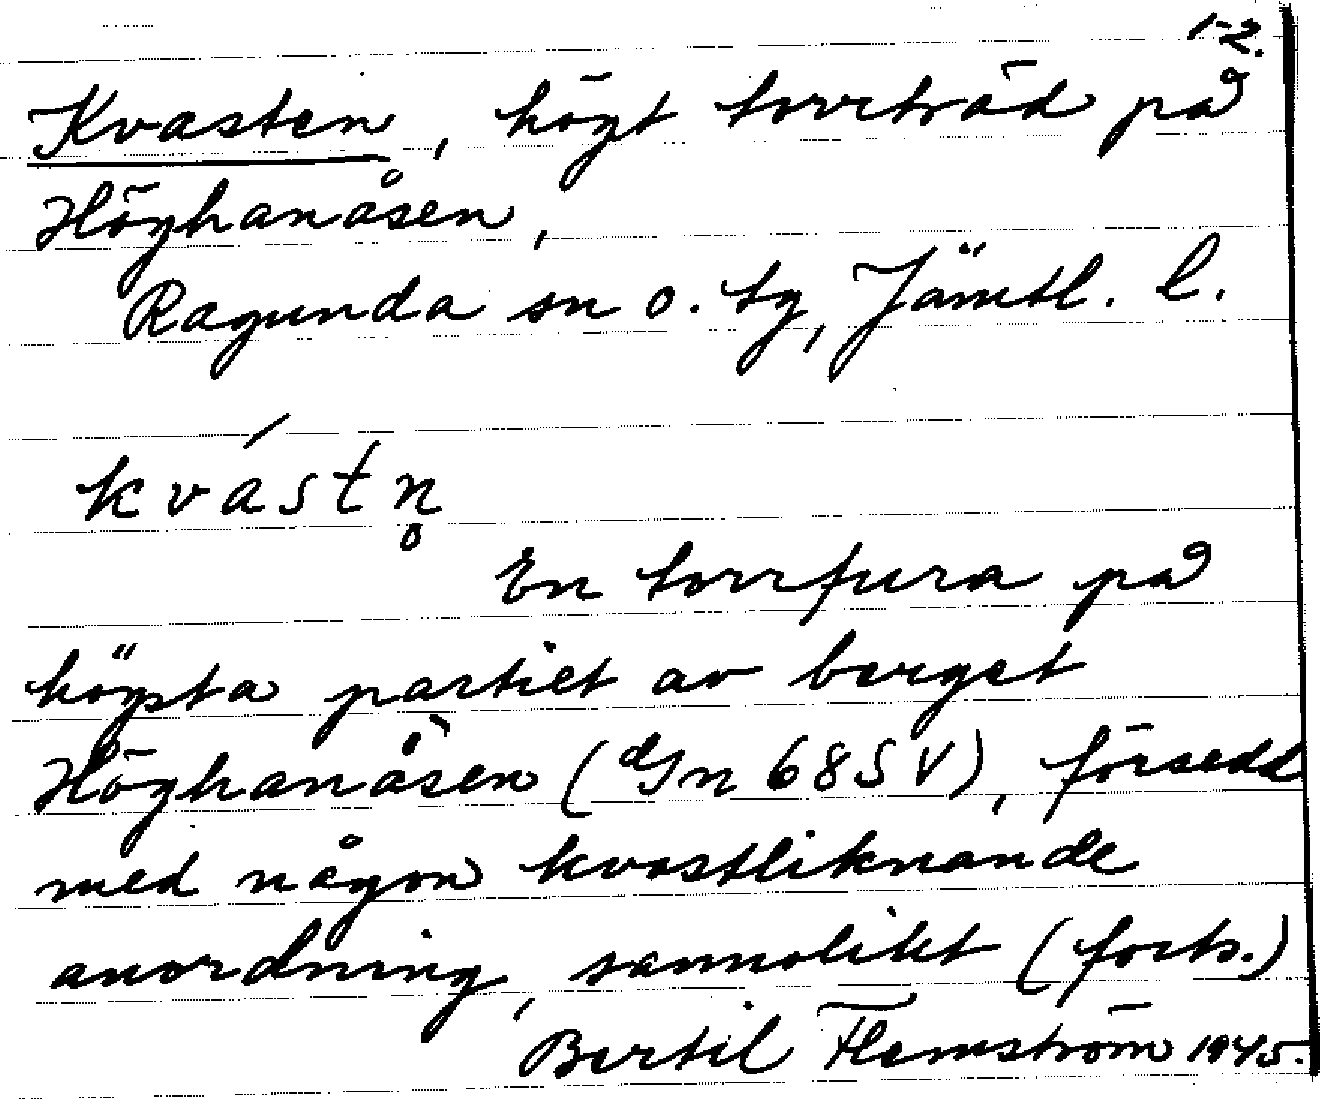 1-2.
Kvasten, högt torrträd på
Höghanåsen,
Ragunda sn o. tg, Jämtl. l.
kvástn̥
En torrfura på
högsta partiet av berget
Höghanåsen (dGn 68SV), försedd
med någon kvastliknande
anordning, sannolikt (forts.)
Bertil Flemström 1945.